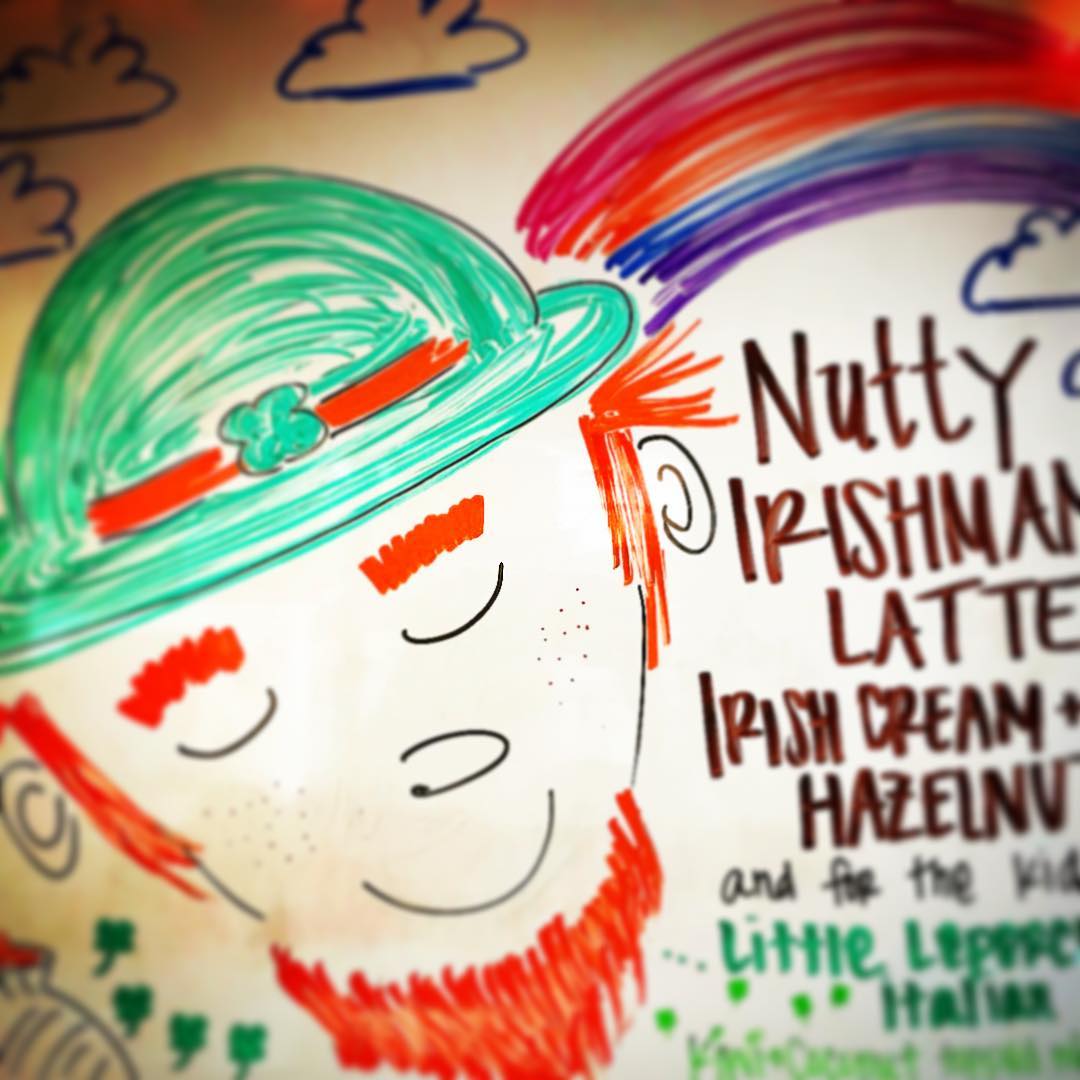 Nutty
IRISHMAN
LATTE
IRISH CREAM +
HAZELNUT
and for the kid
Little Leprec
Italian
Kiwi + Coconut